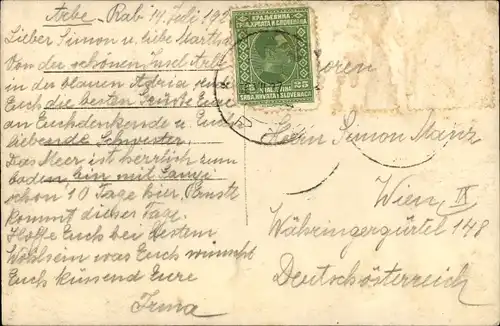 Arbe. Rab 14 Juli 192
Lieber Simon u. liebe Martha
Von der schönen Insel Arbe
in der blauen Adria sende
Euch die besten Grüsse Eure
an Euch denkende u. Euch
liebende Schwester.
Das Meer ist herrlich zum
baden, bin mit
schon 10 Tage hier
kommt dieser Tage.
Hoffe Euch bei bestem
Wohlsein was Euch wünscht
Euch küssend Eure
Irma
КРАЉЕВИНА
СРБА, ХРВАТА И СЛОВЕНАЦА
25
SRBA, HRVATA I SLOVENACA
Herrn Simon Mainz
Wien, IX
Währingergürtel 148
Deutschösterreich